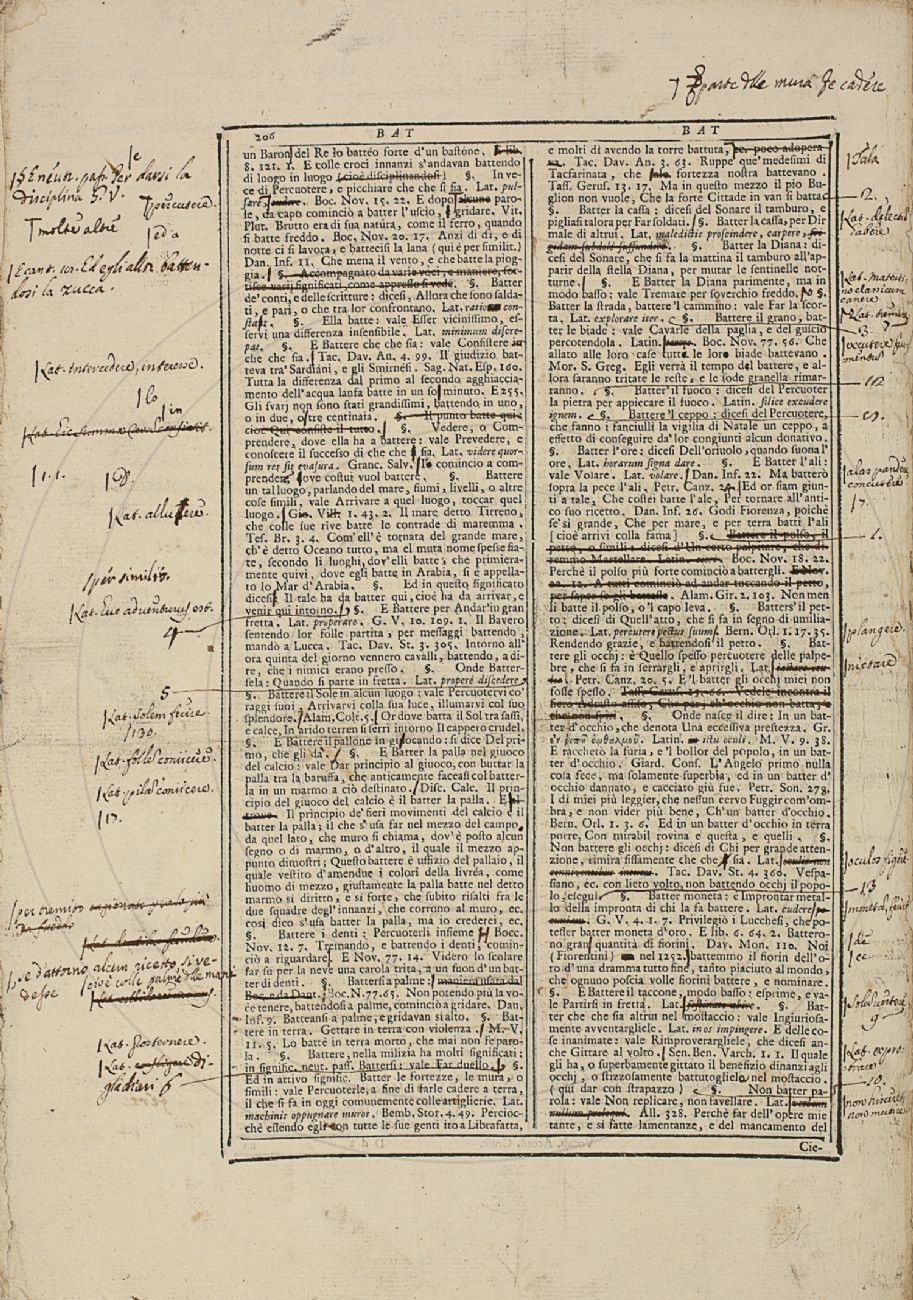 parte delle mura fe cadere
206 BAT
BAT
un Baron del Re lo battéo forte d'un bastone. E lib.
§. 121. 1. E colle croci innanzi s'andavan battendo
di luogo in luogo (cioè disciplinandosi) §. In ve-
ce di Percuotere, e picchiare che che si sia. Lat. pul-
sare, tundere. Boc. Nov. 15. 22. E dopo alcune paro-
le, da capo cominciò a batter l'uscio, gridare. Vit.
Plut. Brutto era di sua natúra, come il ferro, quando
si batte freddo. Boc. Nov. 20. 17. Anzi di dì, e di
notte ci si lavora, e battecisi la lana (qui è per similit.)
Dan. Inf. 11. Che mena il vento, e che batte la piog-
gia. §. Accompagnato da varie voci, e maniere, sor-
tisce varj significati, come appresso si vede. §. Batter
de' conti, e delle scritture: dicesi, Allora che sono salda-
ti, e pari, o che tra lor confrontano. Lat. ratio con-
stat. §. Ella batte: vale Esser vicinissimo, es-
servi una differenza insensibile. Lat. minimum discre-
pat. §. E Battere che che sia: vale Consistere in
che che sia. Tac. Dav. An. 4. 99. Il giudizio bat-
teva tra' Sardiáni, e gli Smirnési. Sag. Nat. Esp. 160.
Tutta la differenza dal primo al secondo agghiaccia-
mento dell'acqua lanfa batte in un so minuto. E 255.
Gli svarj non sono stati grandissimi, battendo in uno,
o in due, o tre centinaia. §. Il punto batte qui:
cioè Qui consiste il tutto. §. Vedere, o Com-
prendere, dove ella ha a battere: vale Prevedere, e
conoscere il successo di che che si sia. Lat. videre quor-
sum res sit evasura. Granc. Salv. Io comincio a com-
prendere, ove costui vuol battere. §. Battere
un tal luogo, parlando del mare, fiumi, livelli, o altre
cose simili, vale Arrivare a quel luogo, toccar quel
luogo. Gio. Vill. 1. 43. 2. Il mare detto Tirreno,
che colle sue rive batte le contrade di maremma.
Tes. Br. 3. 4. Com'ell'è tornata del grande mare,
ch'è detto Oceano tutto, ma el muta nome spesse fia-
te, secondo li luoghi, dov'elli batte; che primiera-
mente quivi, dove egli batte in Arabia, si è appella-
to lo Mar d'Arabia. §. Ed in questo significato
dicesi Il tale ha da batter qui, cioè ha da arrivar, e
venir qui intorno. §. E Battere per Andar in gran
fretta. Lat. properare. G. V. 10. 109. 1. Il Bavero
sentendo lor folle partita, per messaggi battendo,
mandò a Lucca. Tac. Dav. St. 3. 305. Intorno all'
ora quinta del giorno vennero cavalli, battendo, a di-
re, che i nimici erano presso. §. Onde Batter-
sela: Quando si parte in fretta. Lat. properè discedere.
§. Battere il Sole in alcun luogo: vale Percuotervi co'
raggi suoi, Arrivarvi colla sua luce, illumarvi col suo
splendore. Alam. Colt. 5. Or dove batta il Sol tra sassi,
e calce, In arido terren si serri intorno Il cappero crudel.
§. E Battere il pallone in giuocando: si dice Del pri-
mo, che gli dà. §. E Batter la palla nel giuoco
del calcio: vale Dar principio al giuoco, con buttar la
palla tra la baruffa, che anticamente faceasi col batter-
la in un marmo a ciò destinato. Disc. Calc. Il prin-
cipio del giuoco del calcio è il batter la palla. E al-
trove. Il principio de' fieri movimenti del calcio è il
batter la palla; il che s'usa far nel mezzo del campo,
da quel lato, che muro si chiama, dov'è posto alcun
segno o di marmo, o d'altro, il quale il mezzo ap-
punto dimostri; Questo battere è uffizio del pallaio, il
quale vestito d'amendue i colori della livréa, come
huomo di mezzo, giustamente la palla batte nel detto
marmo sì diritto, e sì forte, che subito risalti fra le
due squadre degl'innanzi, che corrono al muro, ec.
così dico s'usa batter la palla, ma io crederei, ec.
§. Battere i denti: Percuoterli insieme. Bocc.
Nov. 12. 7. Tremando, e battendo i denti, comin-
ciò a riguardare. E Nov. 77. 14. Videro lo scolare
far su per la neve una carola trita, a un suon d'un bat-
ter di denti. §. Battersi a palme: maniera usata dal
Bocc. e da Dant. Boc. N. 77. 65. Non potendo più la vo-
ce tenere, battendosi a palme, cominciò a gridare. Dan.
Inf. 9. Batteansi a palme, e gridavan sì alto. §. Bat-
tere in terra. Gettare in terra con violenza. M. V.
11. 5. Lo battè in terra morto, che mai non fe paro-
la. §. Battere, nella milizia ha molti significati:
in signific. neut. pass. Battersi: vale Far duello. §.
Ed in attivo signific. Batter le fortezze, le mura, o
simili: vale Percuoterle, a fine di farle cadere a terra,
il che si fa in oggi comunemente colle artiglierie. Lat.
machinis oppugnare muros. Bemb. Stor. 4. 49. Percioc-
chè essendo egli con tutte le sue genti ito a Librafatta,
e molti dì avendo la torre battuta, ec. poco adopera-
va. Tac. Dav. An. 3. 63. Ruppe que' medesimi di
Tacfarinata, che fortezza nostra battevano.
Tass. Gerus. 13. 17. Ma in questo mezzo il pio Bu-
glion non vuole, Che la forte Cittade in van si batta
§. Batter la cassa: dicesi del Sonare il tamburo, e
pigliasi talora per Far soldati. §. Batter la cassa, per Dir
male di altrus. Lat. maledictis proscindere, carpere,
§. Batter la Diana: di-
cesi del Sonare, che si fa la mattina il tamburo all'ap-
parir della stella Diana, per mutar le sentinelle not-
turne. §. E Batter la Diana parimente, ma in
modo basso: vale Tremare per soverchio freddo. §.
Batter la strada, battere 'l cammino: vale Far la scor-
ta, Lat. explorare iter. §. Battere il grano, bat-
ter le biade: vale Cavarle della paglia, e del guscio
percotendola. Latin. Boc. Nov. 77. 56. Che
allato alle loro case tutte le loro biade battevano.
Mor. S. Greg. Egli verrà il tempo del battere, e al-
lora saranno tritate le reste, e le sode granella rimar-
ranno. §. Batter il fuoco: dicesi del Percuoter
la pietra per appiccare il fuoco. Latin. silice excudere
ignem. §. Battere 'l ceppo: dicesi del Percuotere,
che fanno i fanciulli la vigilia di Natale un ceppo, a
effetto di conseguire da' lor congiunti alcun donativo.
§. Batter l'ore: dicesi Dell'oriuolo, quando suona l'
ore. Lat. horarum signa dare. §. E Batter l'ali:
vale Volare. Lat. volare. Dan. Inf. 22. Ma batterò
sopra la pece l'ali. Petr. Canz. Ed or siam giun-
ti a tale, Che costei batte l'ale, Per tornare all'anti-
co suo ricetto. Dan. Inf. 26. Godi Fiorenza, poichè
se' sì grande, Che per mare, e per terra batti l'ali
[cioè arrivi colla fama] §. Battere il polso, il
petto, o simili: dicesi d'Un certo palpitare, che di-
remmo Martellare. Lat. Boc. Nov. 18. 22.
Perchè il polso più forte cominciò a battergli. E Nov.
22. 12. A tutti cominciò ad andar toccando il petto,
per saper se gli battesse. Alam. Gir. 2. 103. Non men
li batte il polso, o 'l capo leva. §. Batters' il pet-
to: dicesi di Quell'atto, che si fa in segno di umilia-
zione. Lat. percutere pectus suum. Bern. Orl. 1. 17. 35.
Rendendo grazie, e battendosi il petto. §. Bat-
tere gli occhj: è Quello spesso percuotere delle palpe-
bre, che si fa in serrargli, e aprirgli. Lat.
Petr. Canz. 20. 5. E'l batter gli occhj miei non
fosse spesso. Tass. Gerus. 19. 66. Vedele incontra il
fiero Adrasto assiso, Che par, ch'occhio non batta, e
che non spiri. §. Onde nasce il dire: In un bat-
ter d'occhio, che denota Una eccessiva prestezza. Gr.
Latin. in situ oculi. M. V. 9. 38.
E racchetò la furia, e 'l bollor del popolo, in un bat-
ter d'occhio. Giard. Cons. L'Angelo primo nulla
cosa fece, ma solamente superbìa, ed in un batter d'
occhio dannato, e cacciato giù fue. Petr. Son. 278.
I dì miei più leggier, che nessun cervo Fuggir com'om-
bra, e non vider più bene, Ch'un batter d'occhio.
Bern. Orl. 1. 3. 6. Ed in un batter d'occhio in terra
porre, Con mirabil rovina e questa, e quelli. §.
Non battere gli occhj: dicesi di Chi per grande atten-
zione, rimira fissamente che che si sia. Lat.
Tac. Dav. St. 4. 360. Vespa-
siano, ec. con lieto volto, non battendo occhj il popo-
lo, eseguì. §. Batter moneta: è Improntar metal-
lo della impronta di chi la fa battere. Lat. cudere
G. V. 4. 1. 7. Privilegiò i Lucchesi, che po-
tesser batter moneta d'oro. E lib. 6. 64. 2. Battero-
no gran quantità di fiorini. Dav. Mon. 110. Noi
(Fiorentini) nel 1252. battemmo il fiorin dell'o-
ro d'una dramma tutto fine, tanto piaciuto al mondo,
che ognuno poscia volle fiorini battere, e nominare.
§. E Battere il taccone, modo basso: esprime, e va-
le Partirsi in fretta. Lat. §. Bat-
ter che che sia altrui nel mostaccio: vale Ingiuriosa-
mente avventargliele. Lat. in os impingere. E delle co-
se inanimate: vale Rimproverargliele, che dicesi an-
che Gittare al volto. Sen. Ben. Varch. 1. 1. Il quale
gli ha, o superbamente gittato il benefizio dinanzi agli
occhj, o stizzosamente battutoglielo nel mostaccio.
(qui dar con strapazzo) §. Non batter pa-
rola: vale Non replicare, non favellare. Lat.
All. 328. Perchè far dell'opere mie
tante, e sì fatte lamentanze, e del mancamento del
Cie-
percuotere.
molte altre
ed a
dosi la zucca.
Lat. intercedere, interesse.
lo
in
1.1.
Lat. alluere.
per similit.
4
5
Lat. Solem ferire
130.
Lat. follem conijcere.
Lat. pilam conijcere.
Lat. prosternere.
6
Tala
2.
3.
7.
plangere.
nictare
13
9
10.